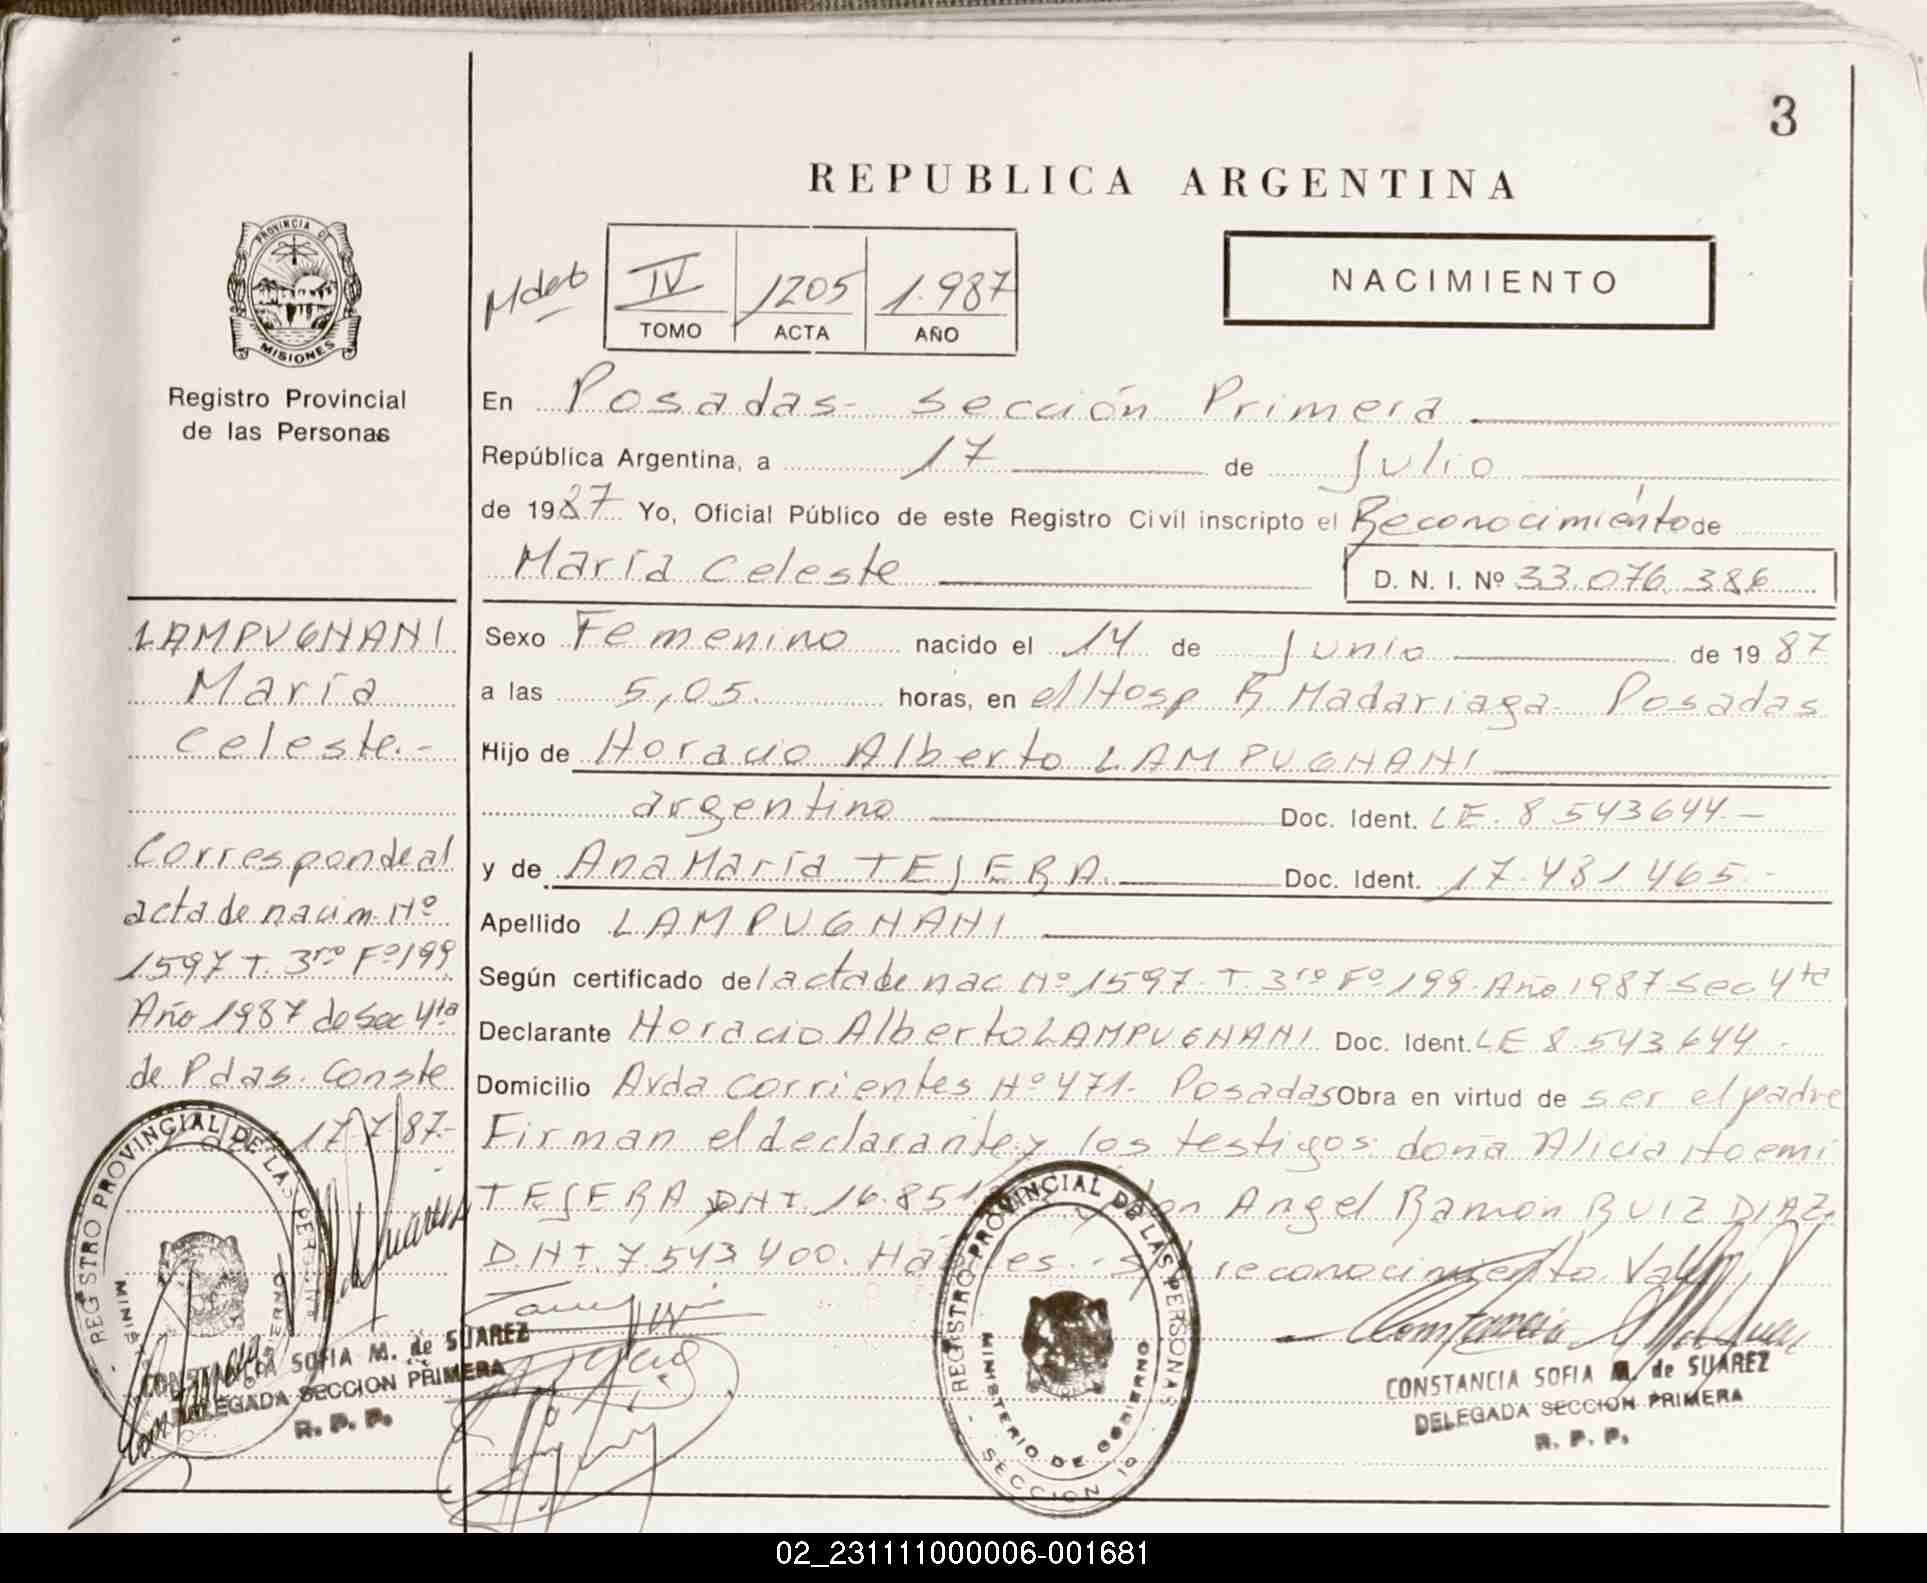 3
REPUBLICA ARGENTINA
PROVINCIA DE
MISIONES
Registro Provincial
de las Personas
IV 1205 1.987
TOMO ACTA AÑO
NACIMIENTO
En Posadas- sección Primera
República Argentina, a 17 de Julio
de 1987 Yo, Oficial Público de este Registro Civil inscripto el Reconocimiento de
María Celeste D. N. I. Nº 33.076.386
Sexo Femenino nacido el 14 de Junio de 1987
a las 5,05. horas, en el Hosp R Madariaga- Posadas
Hijo de Horacio Alberto LAMPUGNANI
argentino Doc. Ident. LE. 8.543644.-
y de Ana María TEJERA. Doc. Ident. 17.481.465.-
Apellido LAMPUGNANI
Según certificado del acta de nac Nº 1597- T. 3ro Fº 199. Año 1987 Sec 4ta
Declarante Horacio Alberto LAMPUGNANI Doc. Ident. LE 8.543.644.-
Domicilio Avda Corrientes Nº 471- Posadas Obra en virtud de ser el padre
Firman el declarante y los testigos: doña Alicia Noemi
TEJERA DNI. 16.851 y don Angel Ramon RUIZ DIAZ.
D.N.I. 7.543.400. reconocimiento. Vale
LAMPUGNANI
María
Celeste.-
Corresponde al
acta de nacim. Nº
1597 T. 3ro Fº 199
Año 1987 de Sec 4ta
de Pdas. Conste
17-7-87.-
REGISTRO PROVINCIAL DE LAS PERSONAS
CONSTANCIA SOFIA M. de SUAREZ
DELEGADA SECCION PRIMERA
R. P. P.
REGISTRO PROVINCIAL DE LAS PERSONAS
MINISTERIO DE GOBIERNO
SECCION 1º
CONSTANCIA SOFIA M. de SUAREZ
DELEGADA SECCION PRIMERA
R. P. P.
02_231111000006-001681